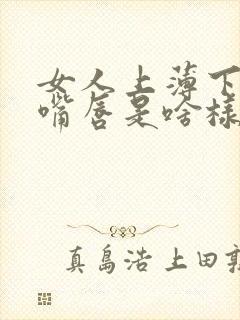 女人上薄下
嘴唇是啥樣
真島浩 上田敦